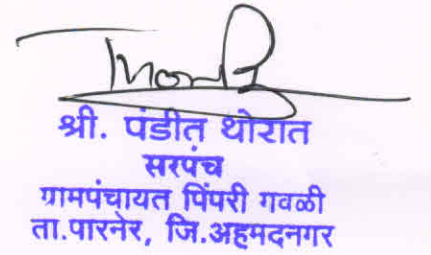 श्री. पंडीत थोरात
सरपंच
ग्रामपंचायत पिंपरी गवळी
ता.पारनेर, जि.अहमदनगर